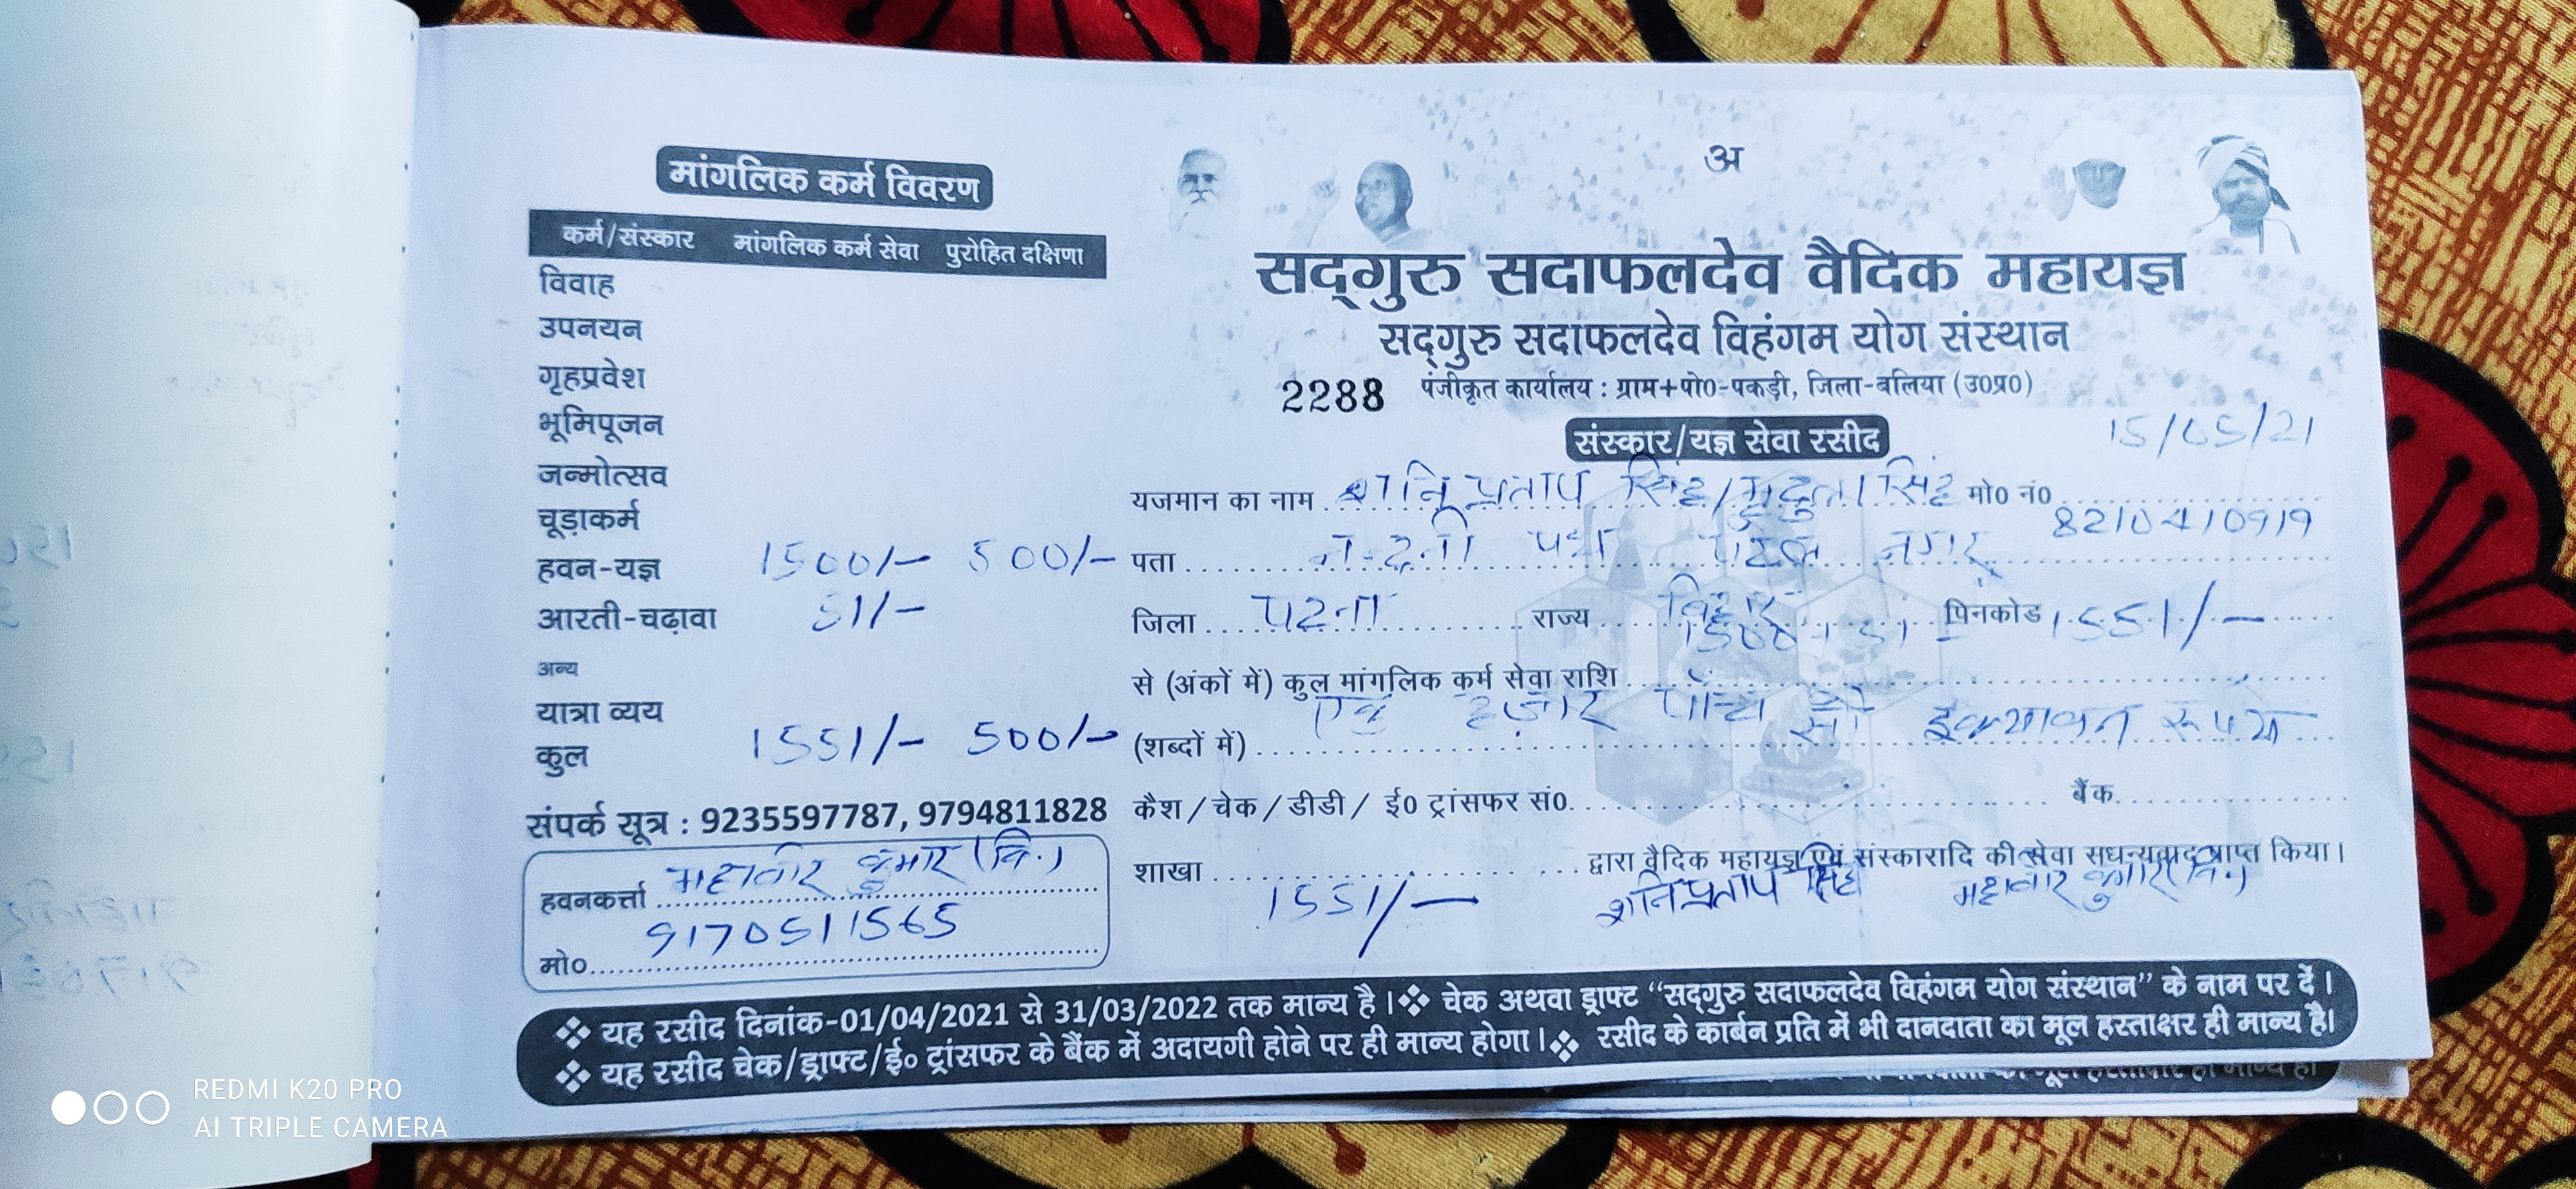 मांगलिक कर्म विवरण
कर्म/संस्कार मांगलिक कर्म सेवा पुरोहित दक्षिणा
विवाह
उपनयन
गृहप्रवेश
भूमिपूजन
जन्मोत्सव
चूड़ाकर्म
हवन-यज्ञ 1500/- 500/-
आरती-चढ़ावा 51/-
अन्य
यात्रा व्यय
कुल 1551/- 500/-
संपर्क सूत्र : 9235597787, 9794811828
हवनकर्त्ता महावीर कुमार (वि.)
मो० 9170511565
अ
सद्गुरु सदाफलदेव वैदिक महायज्ञ
सद्गुरु सदाफलदेव विहंगम योग संस्थान
2288 पंजीकृत कार्यालय : ग्राम+पो०-पकड़ी, जिला-बलिया (उ०प्र०)
संस्कार/यज्ञ सेवा रसीद
15/05/21
यजमान का नाम शनि प्रताप सिंह/मृदुला सिंह मो० नं०
8210410919
पता पटेल नगर
जिला पटना राज्य बिहार पिनकोड 1551/-
1500 + 51
से (अंकों में) कुल मांगलिक कर्म सेवा राशि
(शब्दों में) एक हजार पाँच सौ इक्यावन रूपये
कैश / चेक / डीडी / ई० ट्रांसफर सं०. बैंक
शाखा द्वारा वैदिक महायज्ञ एवं संस्कारादि की सेवा सधन्यवाद प्राप्त किया।
1551/- शनि प्रताप सिंह महावीर कुमार (वि.)
❖ यह रसीद दिनांक-01/04/2021 से 31/03/2022 तक मान्य है। ❖ चेक अथवा ड्राफ्ट “सद्गुरु सदाफलदेव विहंगम योग संस्थान” के नाम पर दें।
❖ यह रसीद चेक/ड्राफ्ट/ई० ट्रांसफर के बैंक में अदायगी होने पर ही मान्य होगा। ❖ रसीद के कार्बन प्रति में भी दानदाता का मूल हस्ताक्षर ही मान्य है।
REDMI K20 PRO
AI TRIPLE CAMERA